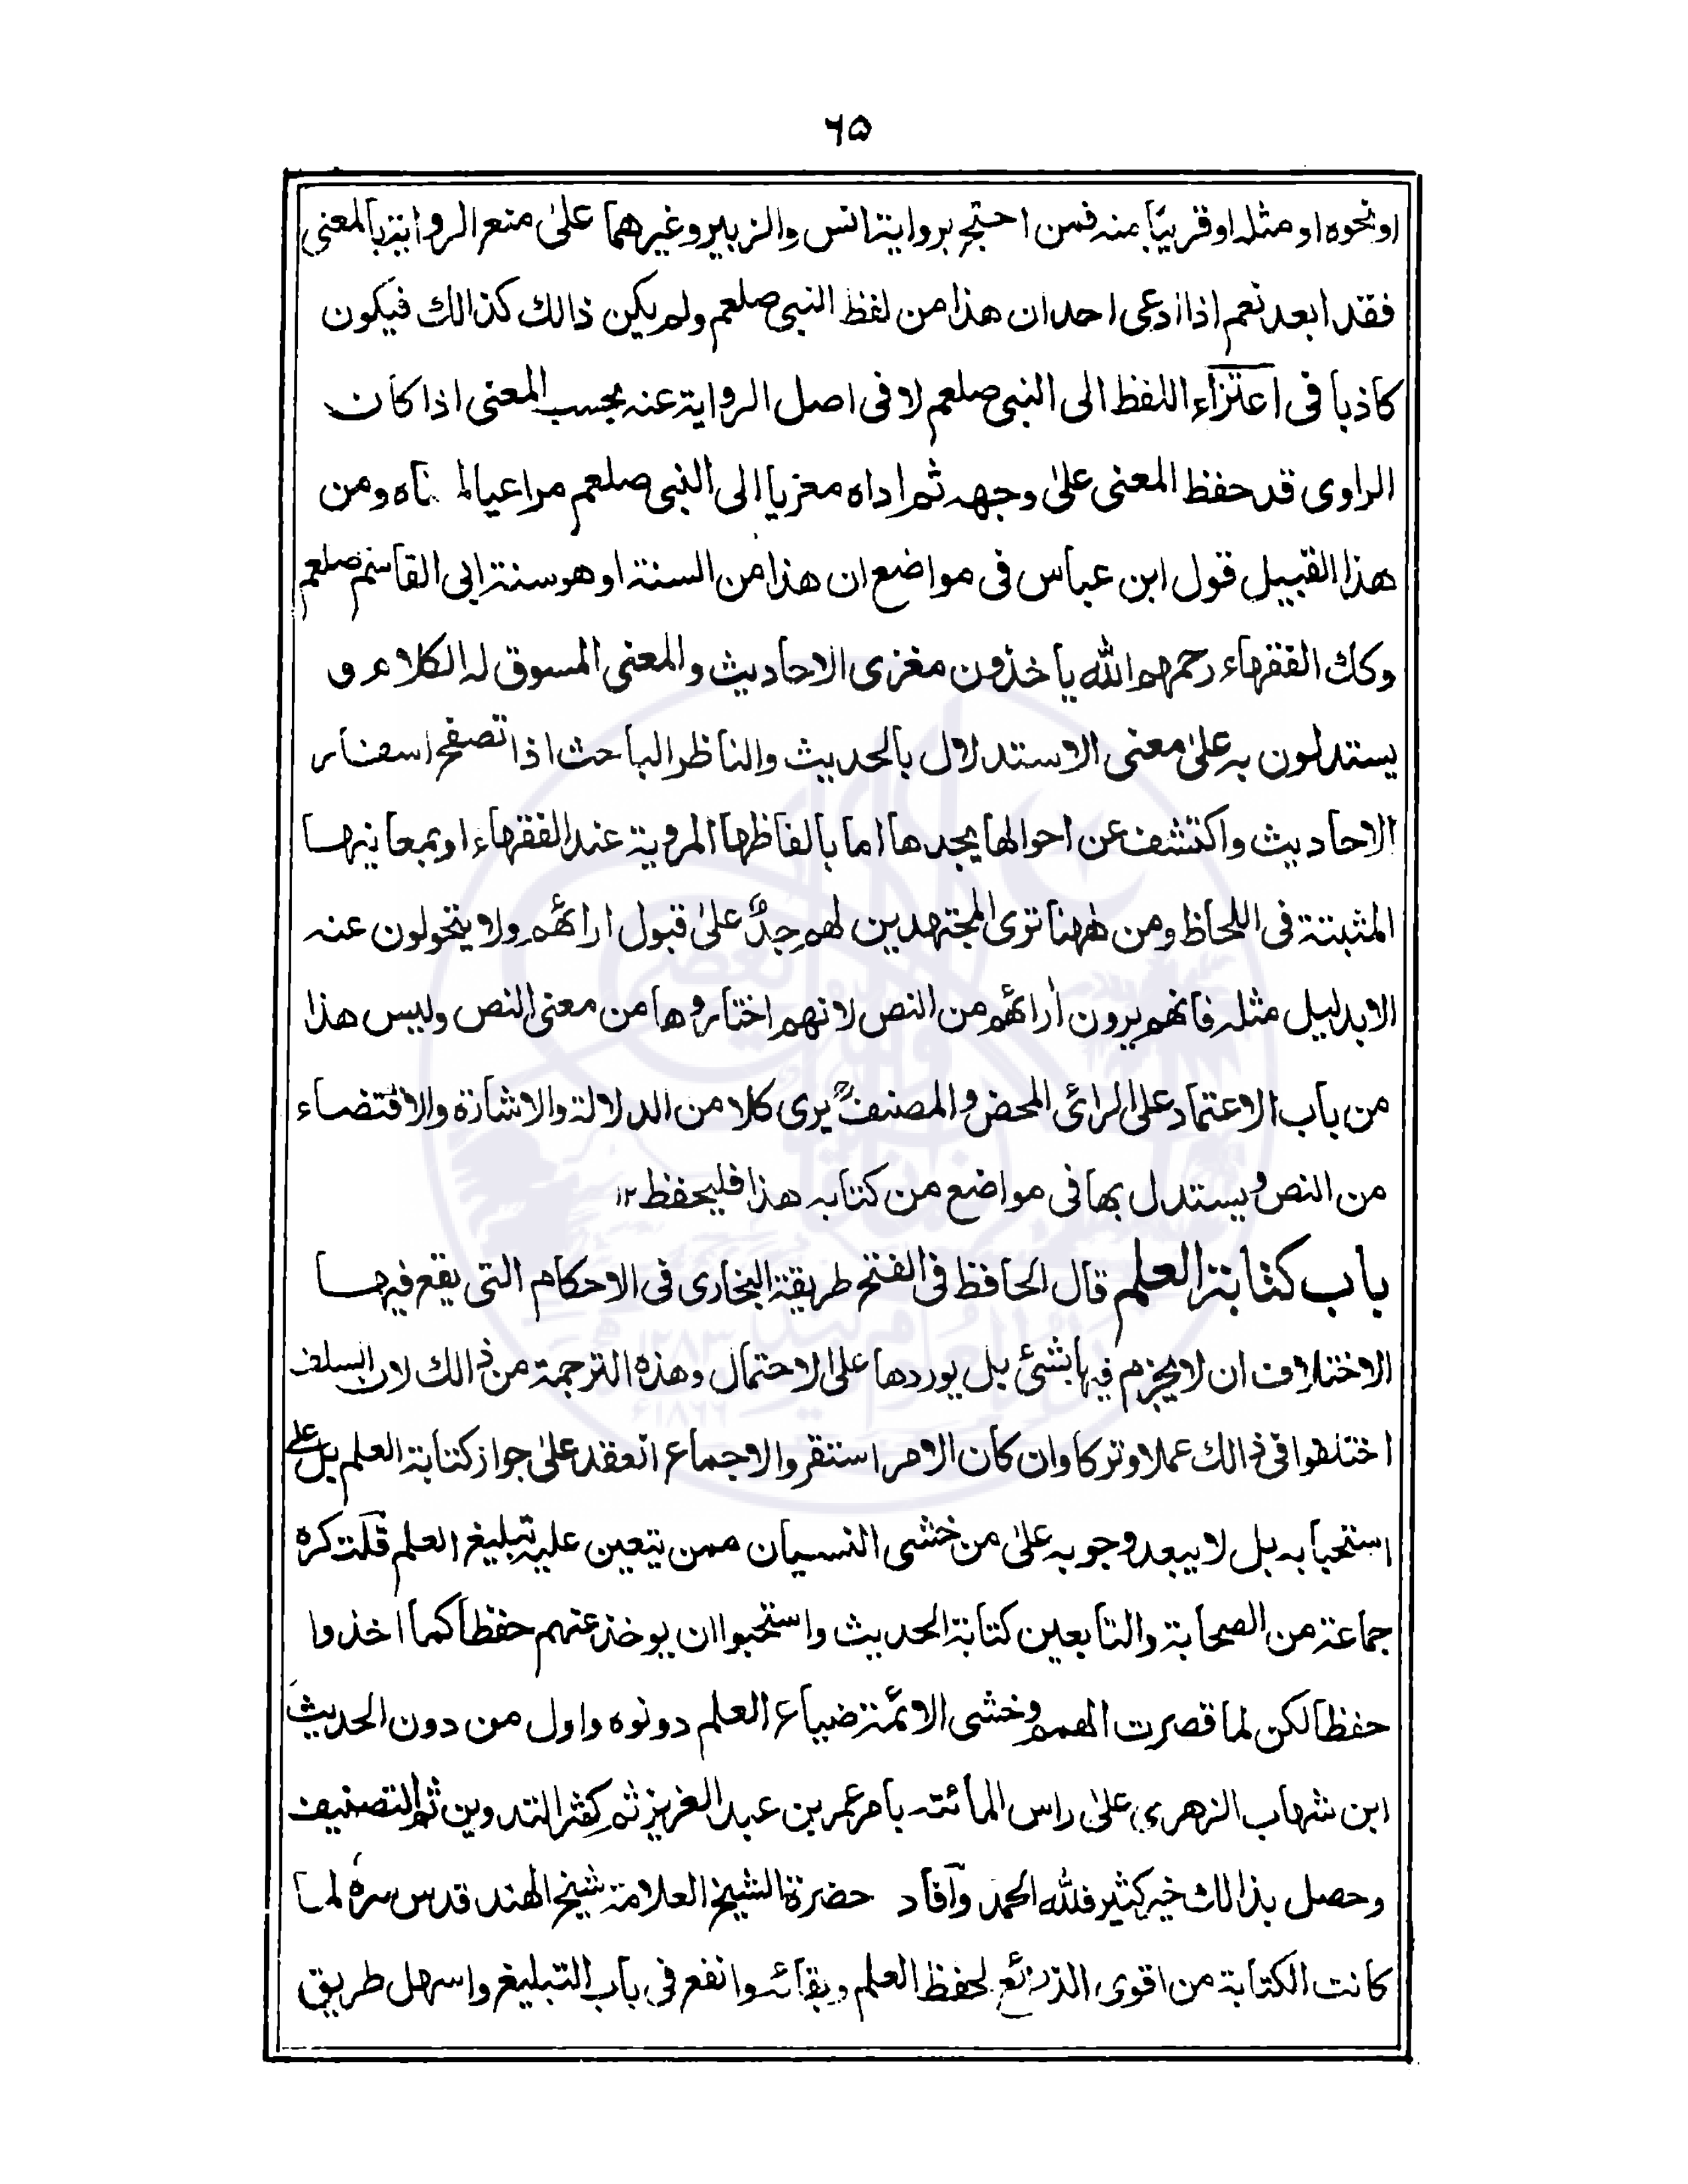 ۶۵
او نحوه او مثله او قريبًا منه فمن احتج برواية انس والزبير وغيرهما علىٰ منع الرواية بالمعنى
فقد ابعد نعم اذا ادعى احد ان هذا من لفظ النبى صلعم ولم يكن ذالك كذالك فيكون
كاذبا فى اعتزاء اللفظ الى النبى صلعم لا فى اصل الرواية عنه بحسب المعنى اذا كان
الراوى قد حفظ المعنى علىٰ وجهه ثم اداه معزيا الى النبى صلعم مراعيا ومن
هذا القبيل قول ابن عباس فى مواضع ان هذا من السنة او هو سنة ابى القاسم صلعم
وكك الفقهاء رحمهم الله ياخذون مغزى الاحاديث والمعنى المسوق له الكلام و
يستدلون به علىٰ معنى الاستدلال بالحديث والناظر الباحث اذا تصفح اسفار
الاحاديث واكتشف عن احوالها يجدها اما بالفاظها المروية عند الفقهاء او بمعانيها
المثبتة فى اللحاظ ومن ههنا ترى المجتهدين لهم جدٌّ علىٰ قبول ارائهم ولا يتحولون عنه
الا بدليل مثله فانهم يرون أرائهم من النص لانهم اختاروها من معنى النص وليس هذا
من باب الاعتماد على الرائى المحض والمصنفؒ يرى كلا من الدلالة والاشارة والاقتضاء
من النص ويستدل بها فى مواضع من كتابه هذا فليحفظ ۱۲
باب كتابة العلم قال الحافظ فى الفتح طريقة البخارى فى الاحكام التى يقع فيها
الاختلاف ان لا يجزم فيها بشئ بل يوردها على الاحتمال وهذه الترجمة من ذالك لان السلف
اختلفوا فى ذالك عملا وتركا وان كان الامر استقر والاجماع انعقد علىٰ جواز كتابة العلم بل علے
استحبابه بل لا يبعد وجوبه علىٰ من خشى النسيان ممن يتعين عليه تبليغ العلم قلت كره
جماعة من الصحابة والتابعين كتابة الحديث واستحبوا ان يوخذ عنهم حفظا كما اخذوا
حفظا لكن لما قصرت الهمم وخشى الائمة ضياع العلم دونوه واول من دون الحديث
ابن شهاب الزهرى علىٰ راس المائته بامر عمر بن عبد العزيز ثم كثر التدوين ثم التصنيف
وحصل بذالك خير كثير فلله الحمد وآفاد حضرة الشيخ العلامة شيخ الهند قدس سره لما
كانت الكتابة من اقوى الذرائع لحفظ العلم وبقائه وانفع فى باب التبليغ واسهل طريق